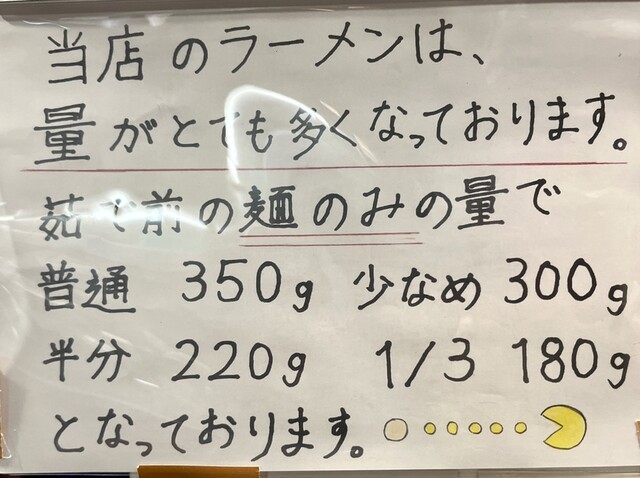 当店のラーメンは、
量がとても多くなっております。
茹で前の麺のみの量で
普通 350g 少なめ 300g
半分 220g 1/3 180g
となっております。